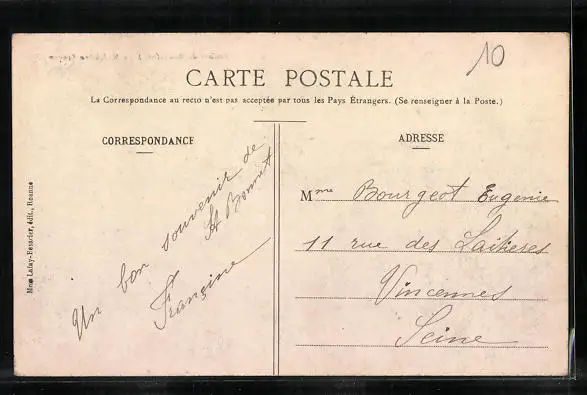 10
CARTE POSTALE
La Correspondance au recto n'est pas acceptée par tous les Pays Étrangers. (Se renseigner à la Poste.)
CORRESPONDANCE
Un bon souvenir de
St Bonnet
Françine
Mme Lafay-Resarier, édit., Roanne
ADRESSE
Mme Bourgeot Eugenie
11 rue des Laitieres
Vincennes
Seine